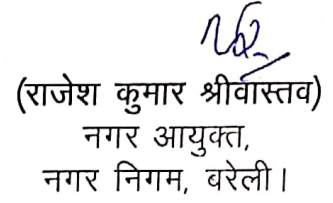 (राजेश कुमार श्रीवास्तव)
नगर आयुक्त,
नगर निगम, बरेली।